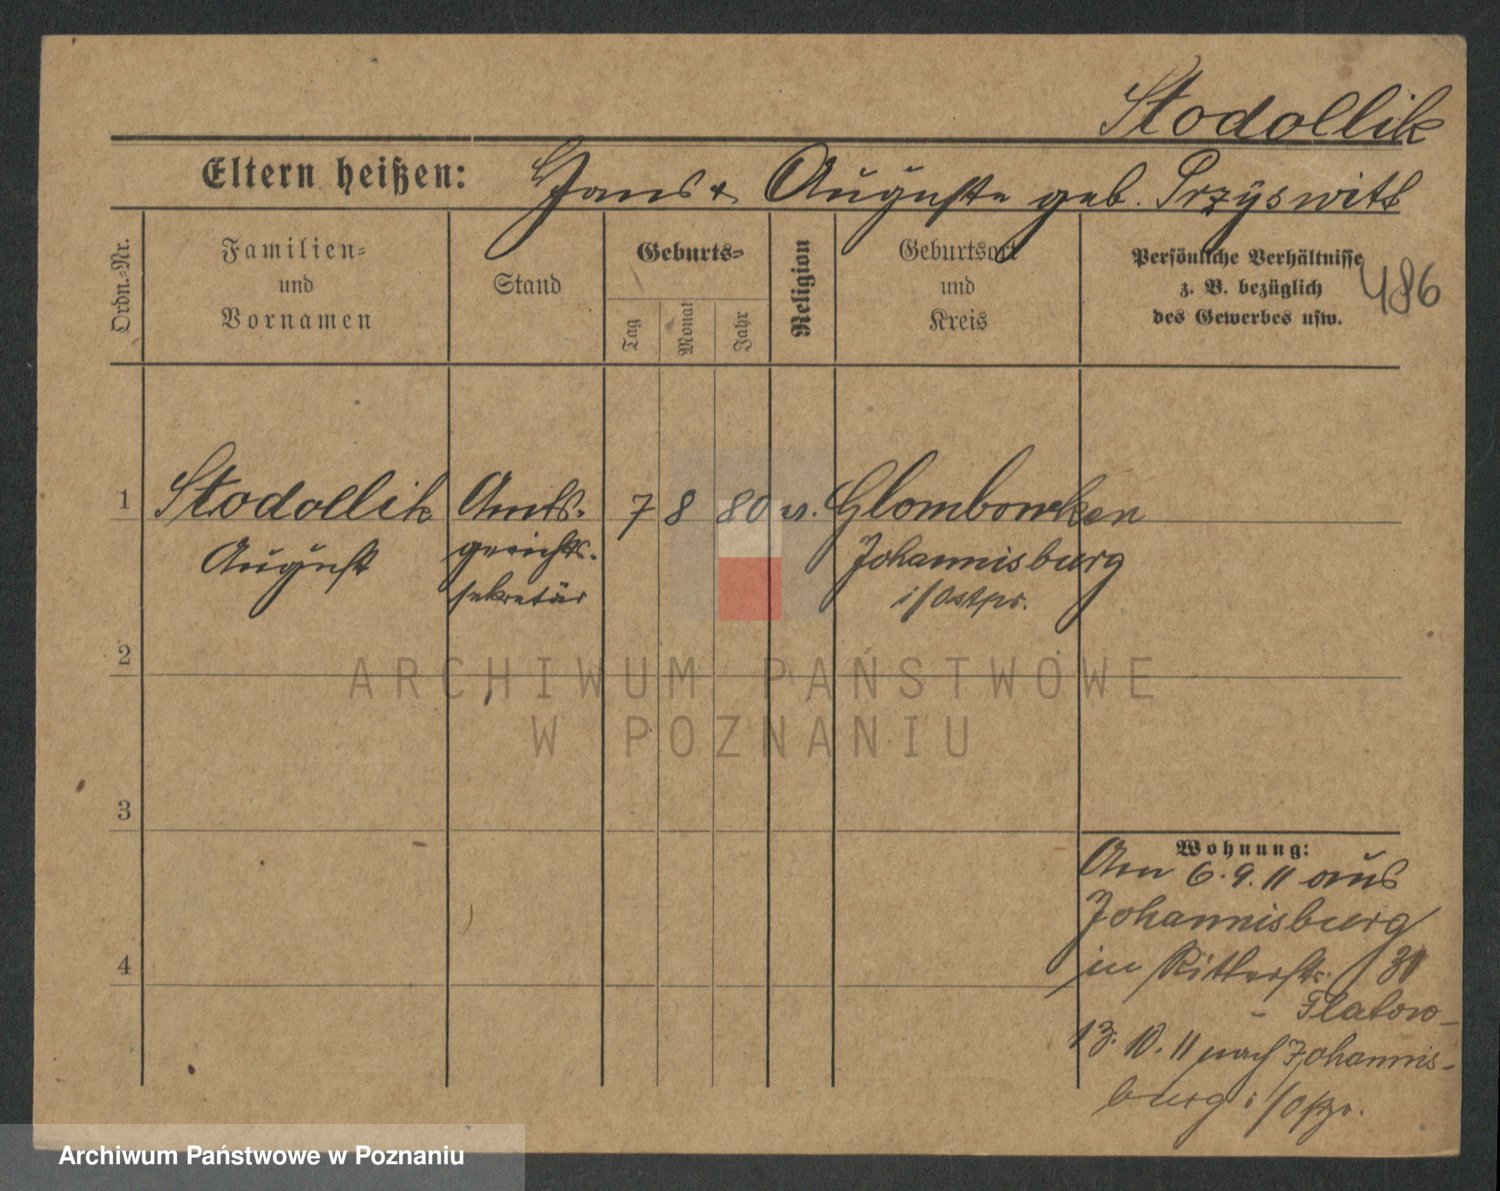 Stodollik
Eltern heißen: Hans & Auguste geb. Przyswitt
Ordn.=Nr.
Familien=
und
Vornamen
Stand
Geburts=
Tag
Monat
Jahr
Religion
Geburtsort
und
Kreis
Persönliche Verhältnisse
z. B. bezüglich
des Gewerbes usw.
486
1 Stodollik Amts- 7 8 80 ev. Glombowken
August gerichts- Johannisburg
sekretär i/Ostpr.
2
ARCHIWUM PAŃSTWOWE
W POZNANIU
3
Wohnung:
Am 6.9.11 aus
Johannisburg
4
in Ritterstr. 31
- Flatow-
13.10.11 nach Johannis-
burg i/Ospr.
Archiwum Państwowe w Poznaniu